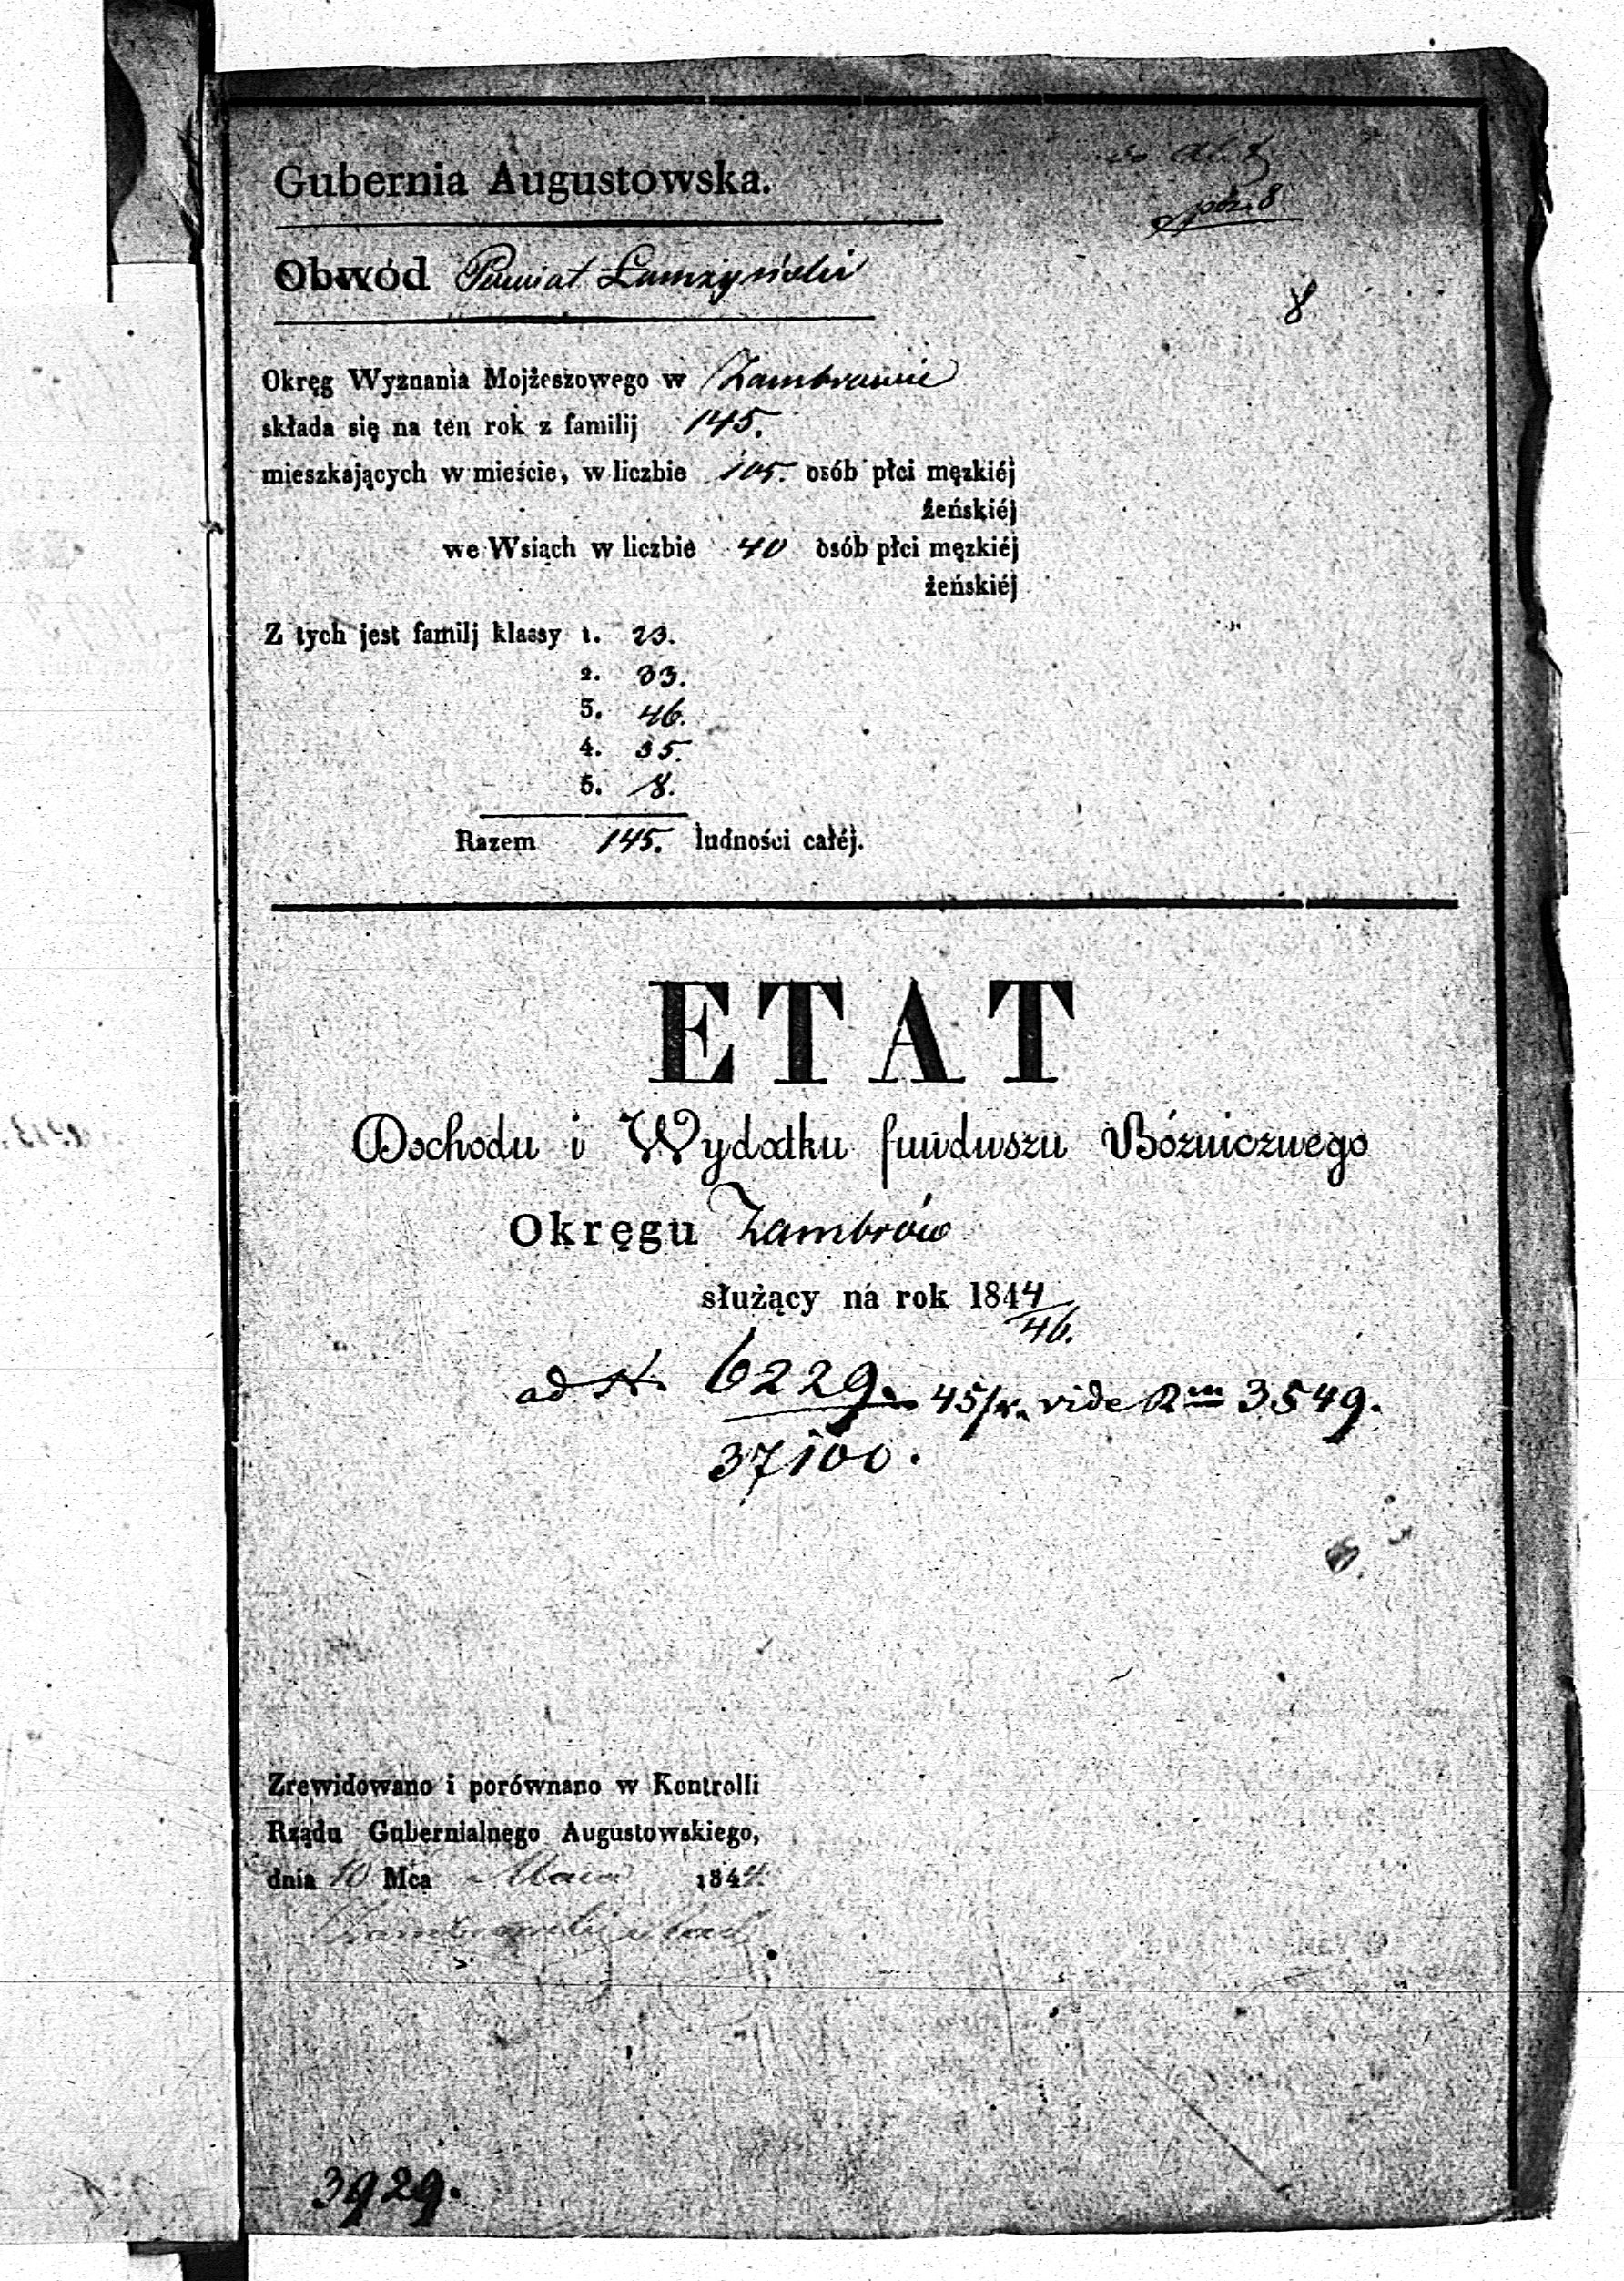 Gubernia Augustowska.
poz. 8
Obwód Powiat Łomżyński
8
Okręg Wyznania Mojżeszowego w Zambrowie
składa się na ten rok z familij 145.
mieszkających w mieście, w liczbie 105. osób płci męzkiéj
żeńskiéj
we Wsiach w liczbie 40 osób płci męzkiéj
żeńskiéj
Z tych jest familj klassy 1. 23.
2. 33.
3. 46.
4. 35.
5. 8.
Razem 145. ludności całéj.
ETAT
Dochodu i Wydatku funduszu Bóznicznego
Okręgu Zambrów
służący na rok 1844
/46.
ad N. 6229. 45/r. vide Rm 3549.
37100.
Zrewidowano i porównano w Kontrolli
Rządu Gubernialnego Augustowskiego,
dnia 10 Mca Maia 1844.
3929.